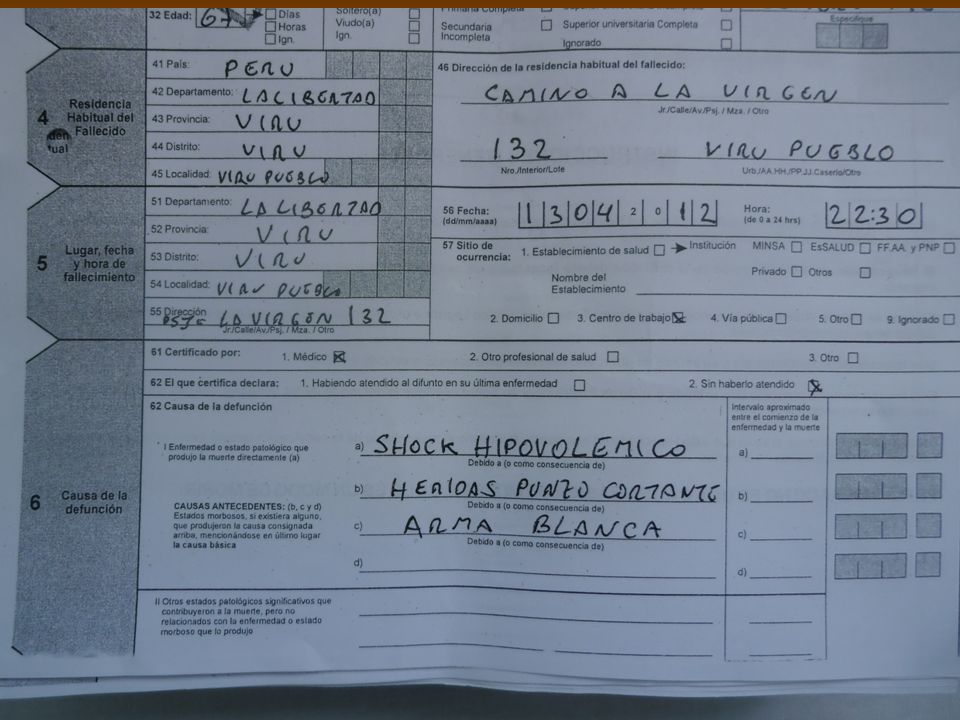 32 Edad: 67 Días
Horas
Ign.
Soltero(a)
Viudo(a)
Ign.
Primaria Completa
Secundaria
Incompleta
Superior universitaria Completa
Ignorado
Especifique
4 Residencia
Habitual del
Fallecido
41 País: PERU
42 Departamento: LA LIBERTAD
43 Provincia: VIRU
44 Distrito: VIRU
45 Localidad: VIRU PUEBLO
46 Dirección de la residencia habitual del fallecido:
CAMINO A LA VIRGEN
Jr./Calle/Av./Psj. / Mza. / Otro
132 VIRU PUEBLO
Nro./Interior/Lote Urb./AA.HH./PP.JJ.Caserio/Otro
5 Lugar, fecha
y hora de
fallecimiento
51 Departamento: LA LIBERTAD
52 Provincia: VIRU
53 Distrito: VIRU
54 Localidad: VIRU PUEBLO
55 Dirección
PSJ= LA VIRGEN 132
Jr./Calle/Av./Psj. / Mza. / Otro
56 Fecha: 13 04 2012 Hora: 22:30
(dd/mm/aaaa) (de 0 a 24 hrs)
57 Sitio de
ocurrencia:
1. Establecimiento de salud Institución MINSA EsSALUD FF.AA. y PNP
Privado Otros
Nombre del
Establecimiento
2. Domicilio 3. Centro de trabajo 4. Vía pública 5. Otro 9. Ignorado
61 Certificado por: 1. Médico 2. Otro profesional de salud 3. Otro
62 El que certifica declara: 1. Habiendo atendido al difunto en su última enfermedad 2. Sin haberlo atendido
6 Causa de la
defunción
62 Causa de la defunción
Intervalo aproximado
entre el comienzo de la
enfermedad y la muerte
I Enfermedad o estado patológico que
produjo la muerte directamente (a)
a) SHOCK HIPOVOLEMICO a)
Debido a (o como consecuencia de)
b) HERIDAS PUNZO CORTANTE b)
Debido a (o como consecuencia de)
CAUSAS ANTECEDENTES: (b, c y d)
Estados morbosos, si existiera alguno,
que produjeron la causa consignada
arriba, mencionándose en último lugar
la causa básica
c) ARMA BLANCA c)
Debido a (o como consecuencia de)
d) d)
II Otros estados patológicos significativos que
contribuyeron a la muerte, pero no
relacionados con la enfermedad o estado
morboso que lo produjo